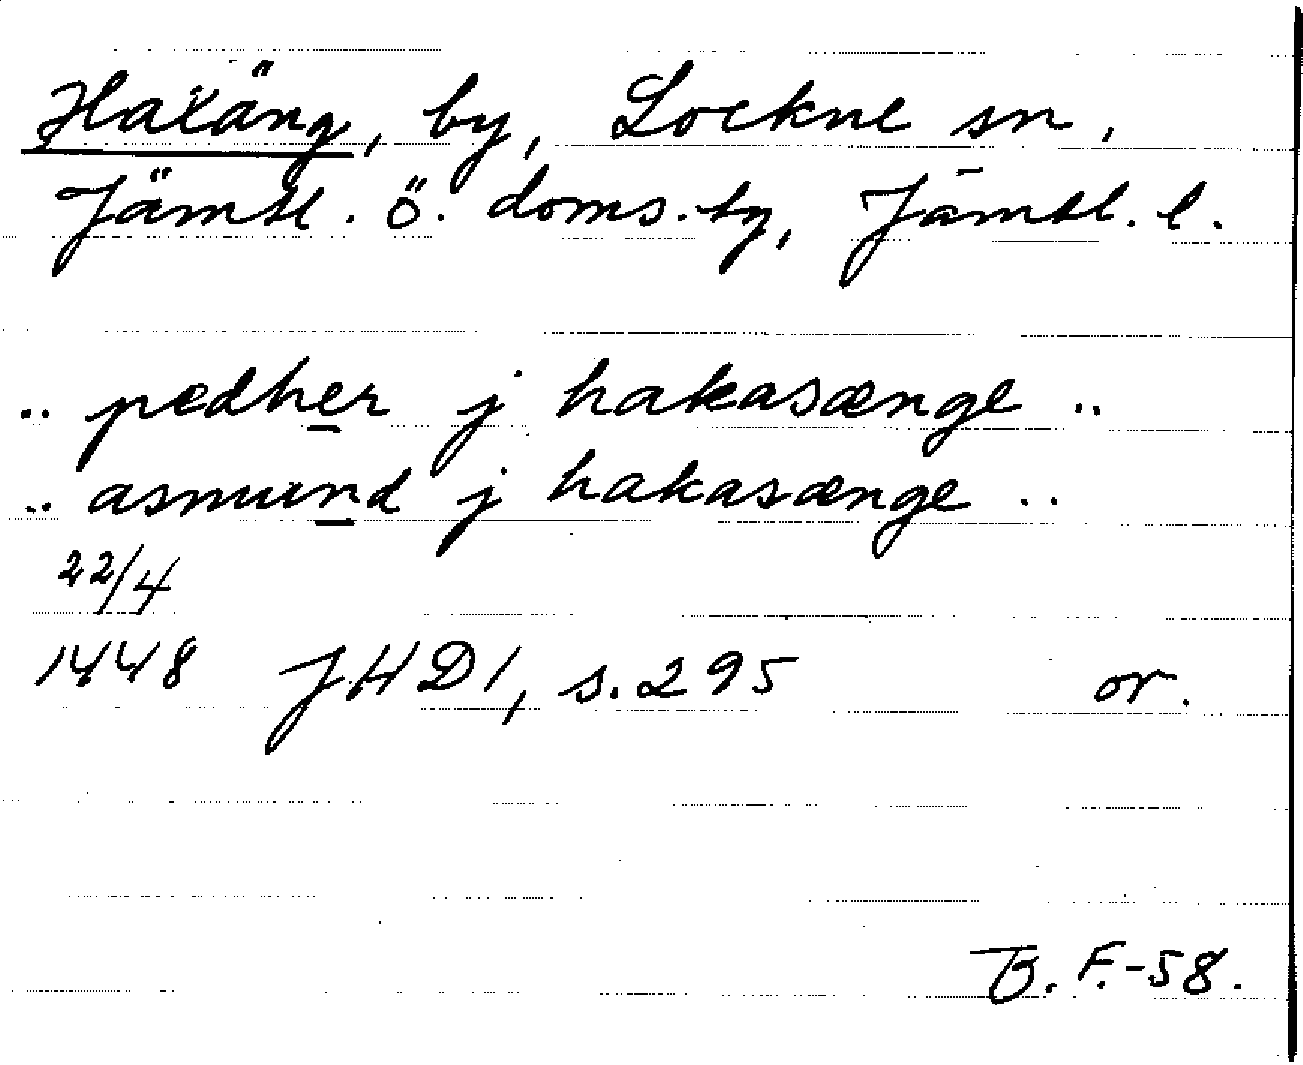 Haxäng, by, Lockne sn,
Jämtl. ö. doms.by, Jämtl. l.
.. pædher j hakasænge ..
.. asmund j hakasænge ..
22/4
1448 JHD1, s.295 or.
B.F.-58.